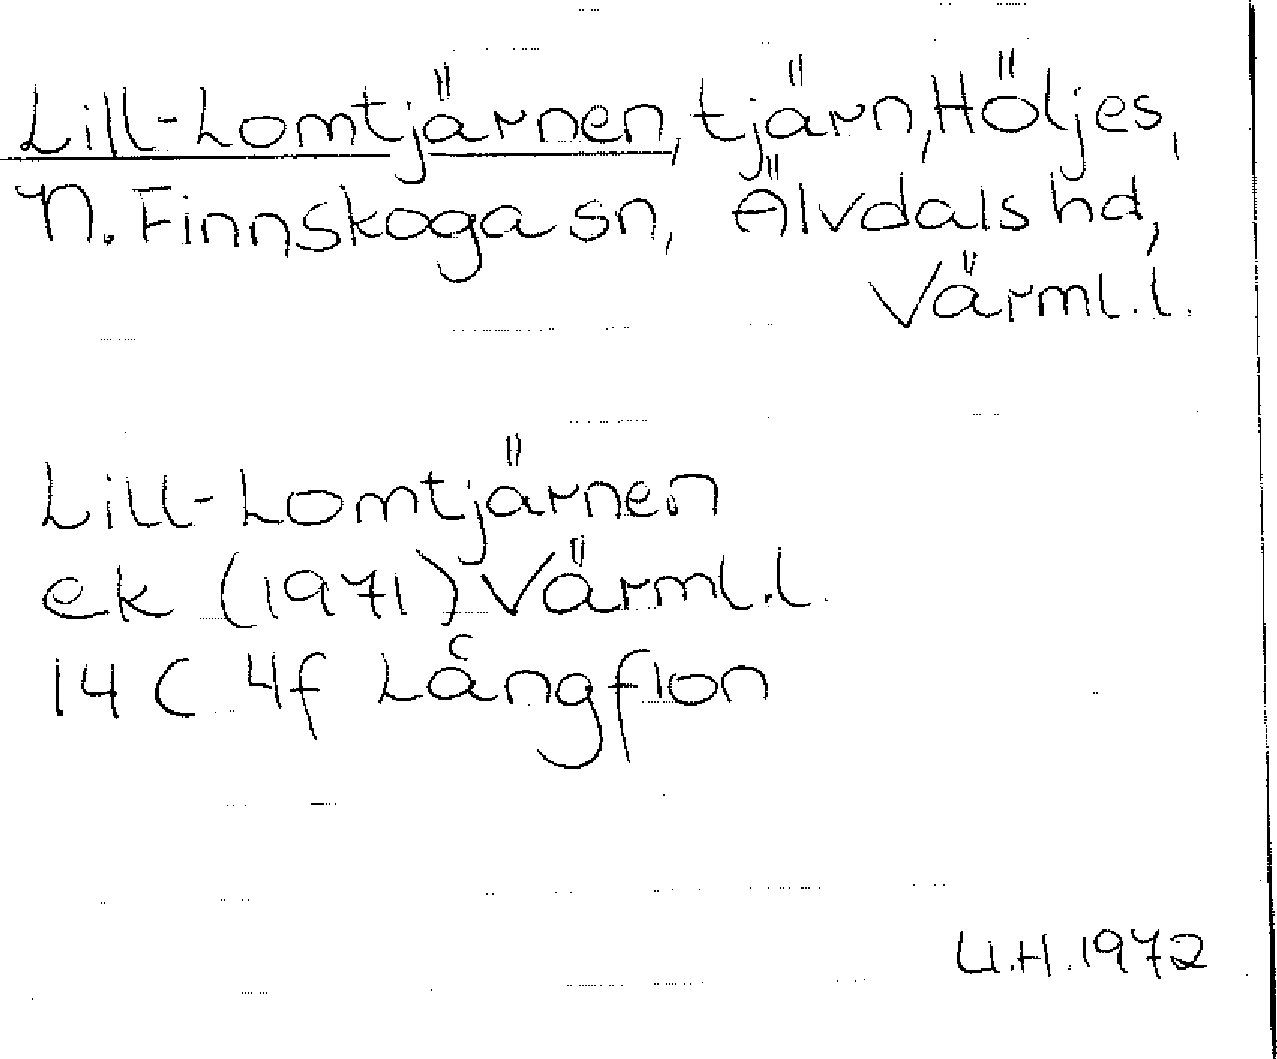 Lill-Lomtjärnen, tjärn, Höljes,
N. Finnskoga sn, Älvdals hd,
Värml.l.
Lill-Lomtjärnen
ek (1971) Värml.l.
14 C 4f Långflon
U.H. 1972